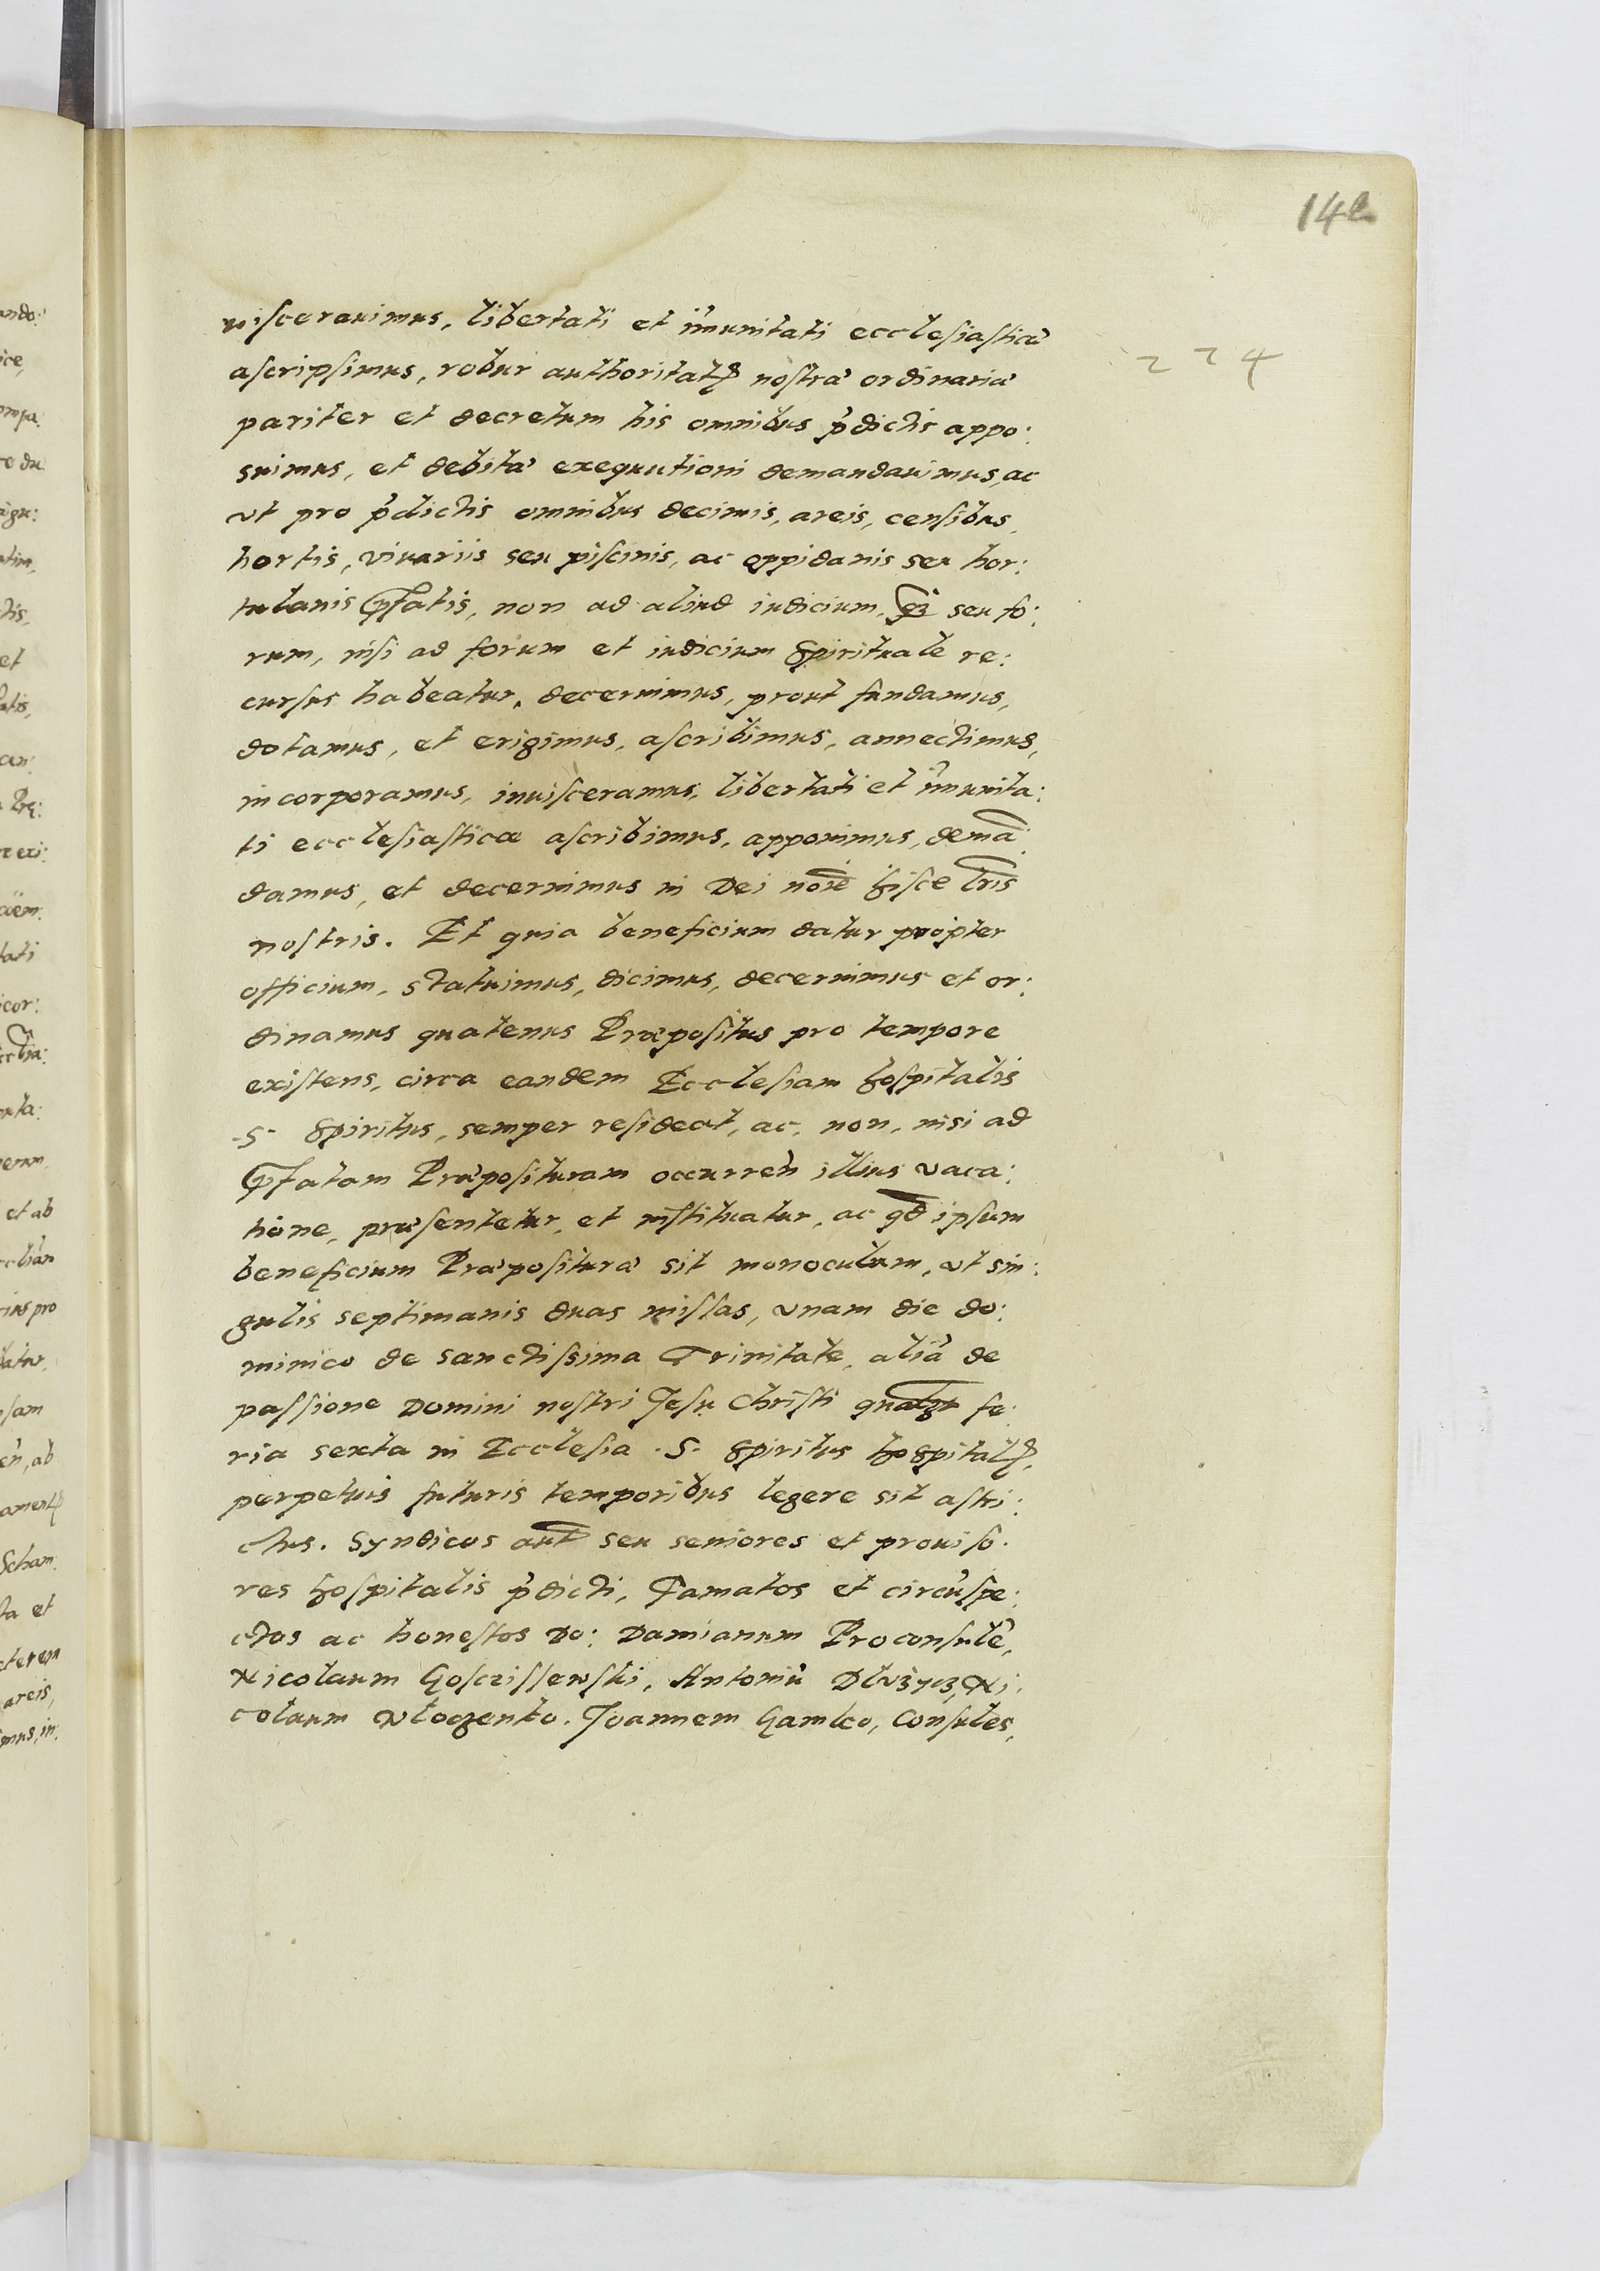 142
224
uiscerauimus, libertati et im̃unitati ecclesiasticæ
ascripsimus, robur authoritatis nostræ ordinariæ
pariter et decretum his omnibus p̃dictis appo:
suimus, et debitæ exequutioni demandauimus, ac
vt pro p̃dictis omnibus decimis, areis, censibus,
hortis, viuariis seu piscinis, ac oppidanis seu hor:
tulanis p̃fatis, non ad aliud iudicium, seu fo:
rum, nisi ad forum et iudicium spirituale re:
cursus habeatur, decernimus, prout fundamus,
dotamus, et erigimus, ascribimus, annectimus,
incorporamus, inuisceramus, libertati et im̃unita:
ti ecclesiasticæ ascribimus, apponimus, demã:
damus, et decernimus in Dei noĩe hisce lr̃is
nostris. Et quia beneficium datur propter
officium, statuimus, dicimus, decernimus et or:
dinamus quatenus Præpositus pro tempore
existens, circa eandem Ecclesiam hospitalis
.S. Spiritus, semper resideat, ac, non, nisi ad
p̃fatam Præposituram occurreñ illius vaca:
tione, præsentetur, et instituatur, ac qd̃ ipsum
beneficium Præposituræ sit monoculum, vt sin:
gulis septimanis duas missas, vnam die do:
minico de sanctissima Trinitate, aliã de
passione Domini nostri Jesu Christi fe:
ria sexta in Ecclesia .S. Spiritus hospitalis,
perpetuis futuris temporibus legere sit astri:
ctus. Syndicos aut̃ seu seniores et prouiso:
res hospitalis p̃dicti, Famatos et circũspe:
ctos ac honestos Do: Damianum Proconsulẽ,
Nicolaum Gosczissewski, Antoniũ Ni:
colaum Joannem Gamlco, Consules,
ando:
ice,
et
et ab
ius pro
ta et
areis,